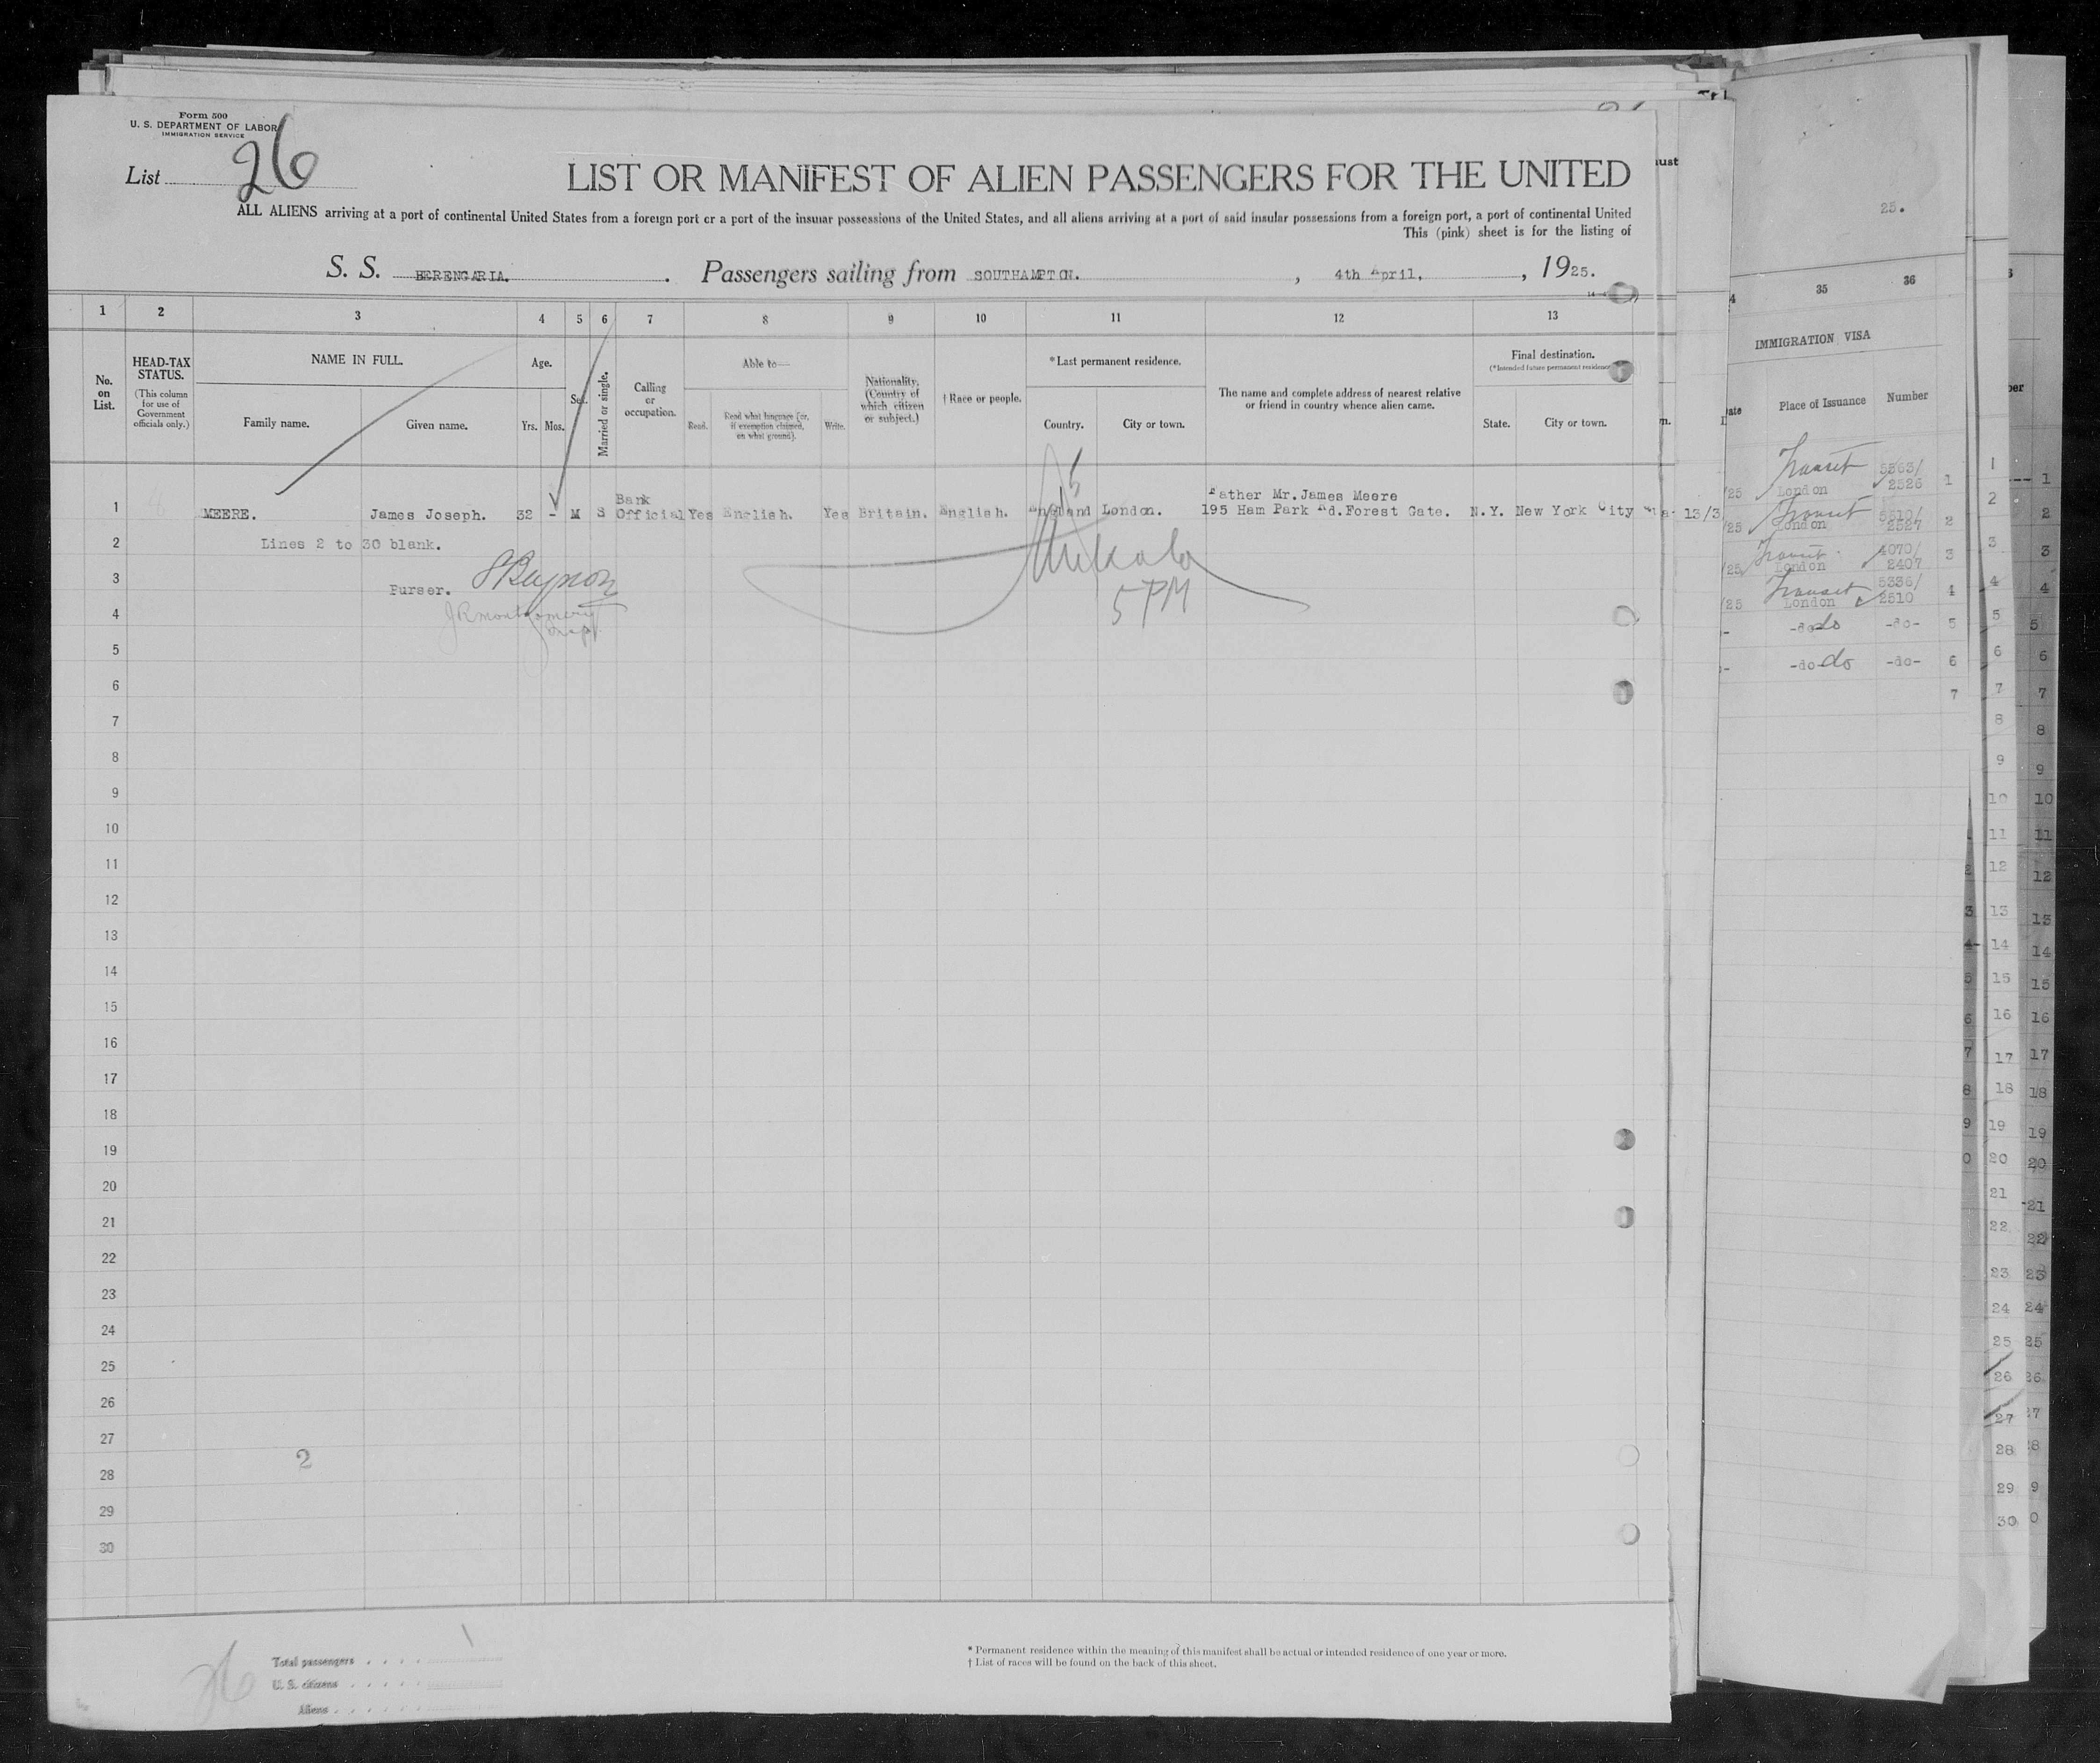 Form 500
U. S. DEPARTMENT OF LABOR
IMMIGRATION SERVICE
List 26
LIST OR MANIFEST OF ALIEN PASSENGERS FOR THE UNITED
ALL ALIENS arriving at a port of continental United States from a foreign port or a port of the insular possessions of the United States, and all aliens arriving at a port of said insular possessions from a foreign port, a port of continental United
This (pink) sheet is for the listing of
S. S. BERENGARIA. Passengers sailing from SOUTHAMPTON. , 4th April, , 1925.
1 2 3 4 5 6 7 8 9 10 11 12 13
No. on List.
HEAD-TAX STATUS.
(This column for use of Government officials only.)
NAME IN FULL.
Family name. Given name.
Age.
Yrs. Mos.
Sex.
Married or single.
Calling or occupation.
Able to—
Read. Read what language [or, if exemption claimed, on what ground]. Write.
Nationality. (Country of which citizen or subject.)
† Race or people.
* Last permanent residence.
Country. City or town.
The name and complete address of nearest relative or friend in country whence alien came.
Final destination.
(*Intended future permanent residence)
State. City or town.
1 MEERE. James Joseph. 32 - M S Bank Official Yes English. Yes Britain. English. England London. Father Mr. James Meere 195 Ham Park Rd. Forest Gate. N.Y. New York City 13/3
2 Lines 2 to 30 blank.
3 Purser.
4
5 PM
5
6
7
8
9
10
11
12
13
14
15
16
17
18
19
20
21
22
23
24
25
26
27
2
28
29
30
26
Total passengers
U. S. citizens
Aliens
* Permanent residence within the meaning of this manifest shall be actual or intended residence of one year or more.
† List of races will be found on the back of this sheet.
25.
35 36
IMMIGRATION VISA
Place of Issuance Number
/25 Transit London 5363/2526 1
/25 Transit London 5510/2527 2
/25 Transit London 4070/2407 3
/25 Transit London 5336/2510 4
-do- do -do- 5
-do- do -do- 6
7